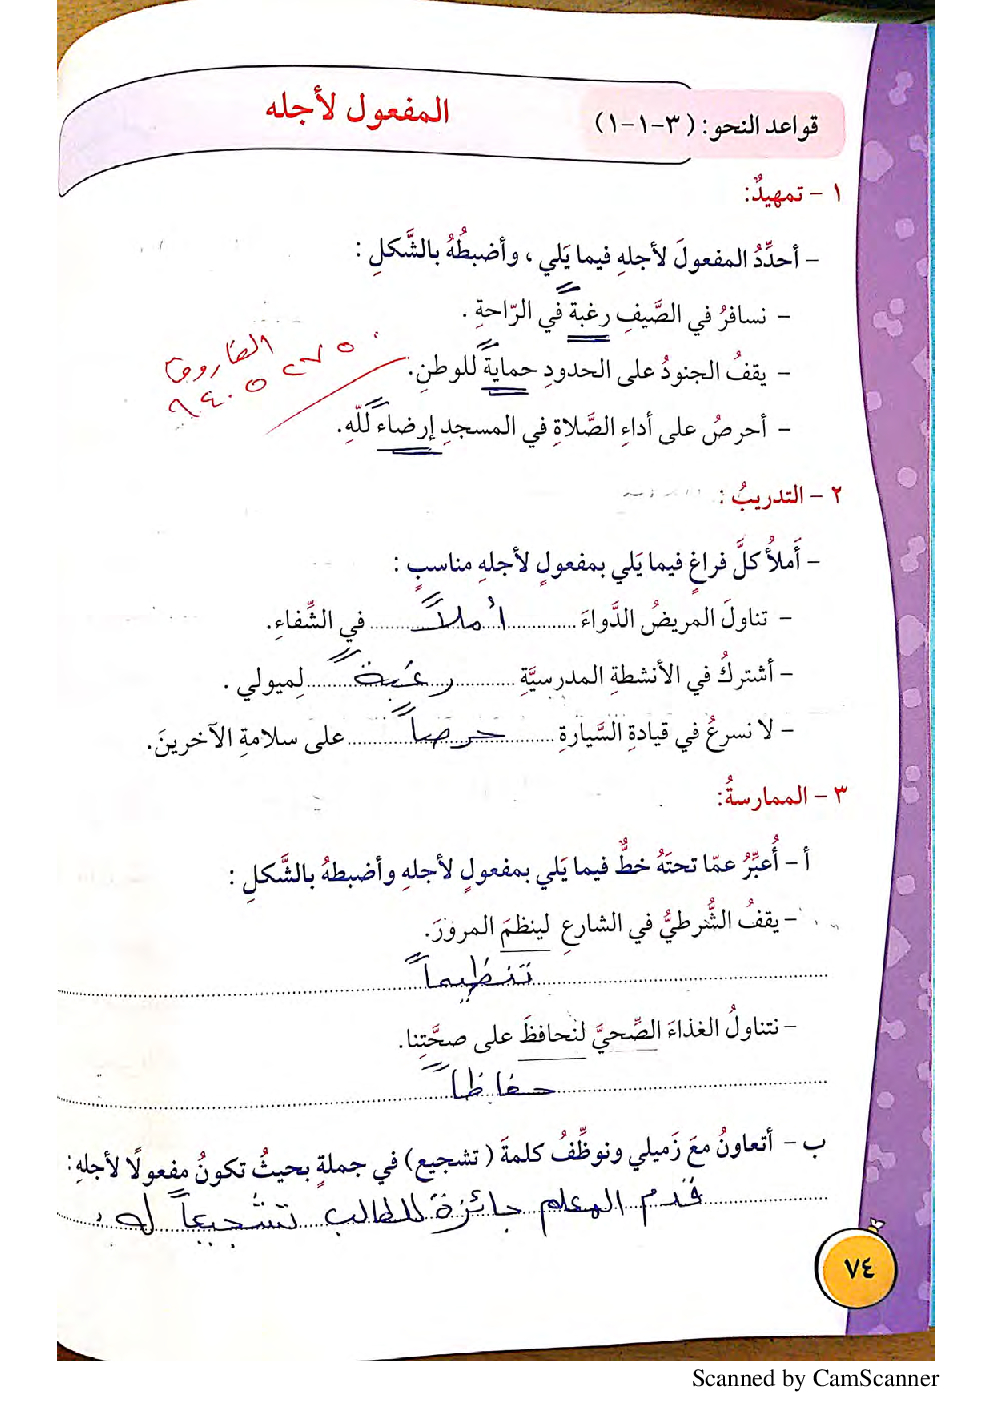 المفعول لأجله
قواعد النحو: (٣-١-١)
١ - تمهيدٌ:
- أحدِّدُ المفعولَ لأجلهِ فيما يَلي ، وأضبطُهُ بالشَّكلِ :
- نسافرُ في الصَّيفِ رغبةً في الرّاحةِ .
- يقفُ الجنودُ على الحدودِ حمايةً للوطنِ.
- أحرصُ على أداءِ الصَّلاةِ في المسجدِ إرضاءً للّهِ.
٢ - التدريبُ :
- أَملأُ كلَّ فراغٍ فيما يَلي بمفعولٍ لأجلهِ مناسبٍ :
- تناولَ المريضُ الدَّواءَ ............ أملاً ............ في الشِّفاءِ.
- أشتركُ في الأنشطةِ المدرسيَّةِ ............ رغبةً ............ لِميولي .
- لا نسرعُ في قيادةِ السَّيارةِ ............ حرصاً ............ على سلامةِ الآخرينَ.
٣ - الممارسةُ:
أ - أُعبِّرُ عمّا تحتَهُ خطٌّ فيما يَلي بمفعولٍ لأجلهِ وأضبطهُ بالشَّكلِ :
- يقفُ الشُّرطيُّ في الشارعِ لينظمَ المرورَ.
تنظيماً
- نتناولُ الغذاءَ الصِّحيَّ لنُحافظَ على صحَّتِنا.
حفاظاً
ب - أتعاونُ معَ زَميلي ونوظِّفُ كلمةَ ( تشجيع) في جملةٍ بحيثُ تكونُ مفعولًا لأجلهِ:
قدم المعلم جائزة للطالب تشجيعاً له
٧٤
Scanned by CamScanner